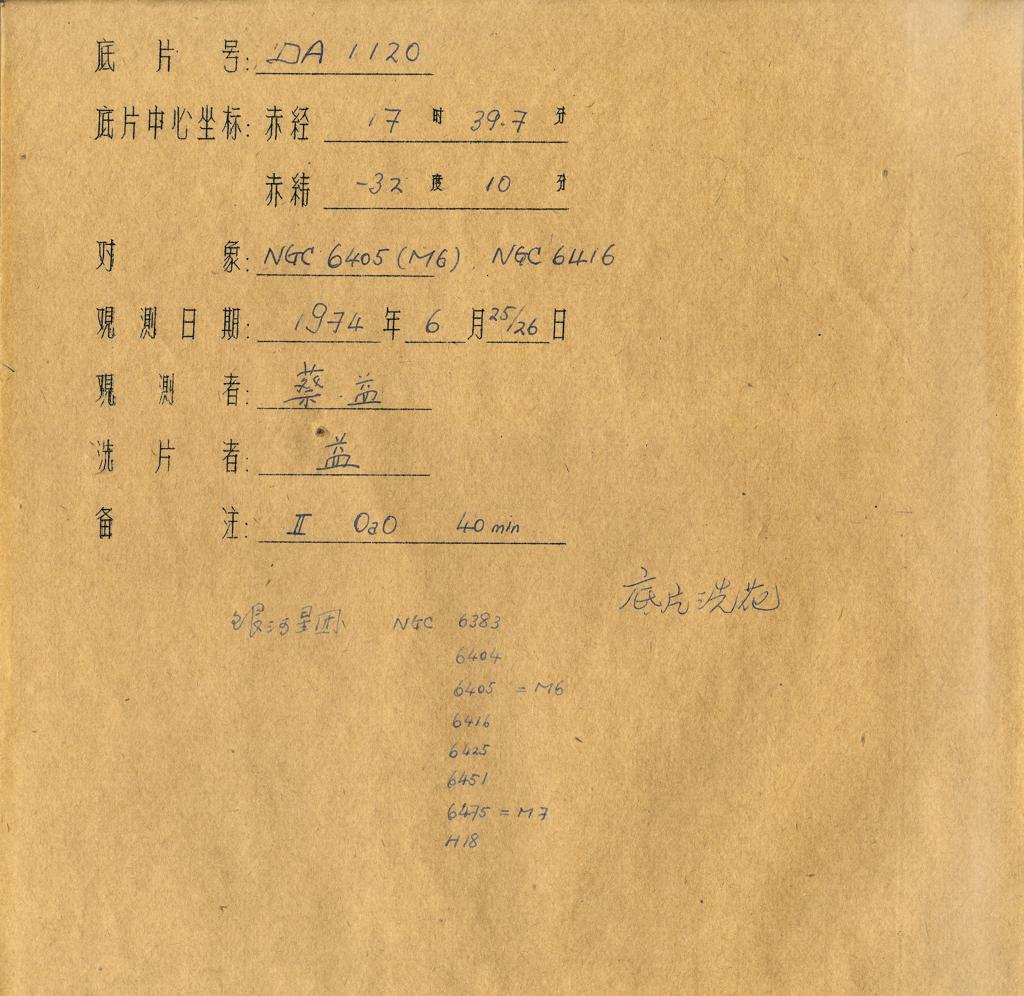 底片号: DA 1120
底片中心坐标: 赤经 17 时 39.7 分
赤纬 -32 度 10 分
对象: NGC 6405 (M6) NGC 6416
观测日期: 1974 年 6 月 25/26 日
观测者: 蔡 益
洗片者: 益
备注: II OaO 40 min
底片洗花
银河星团 NGC 6383
6404
6405 = M6
6416
6425
6451
6475 = M7
H18